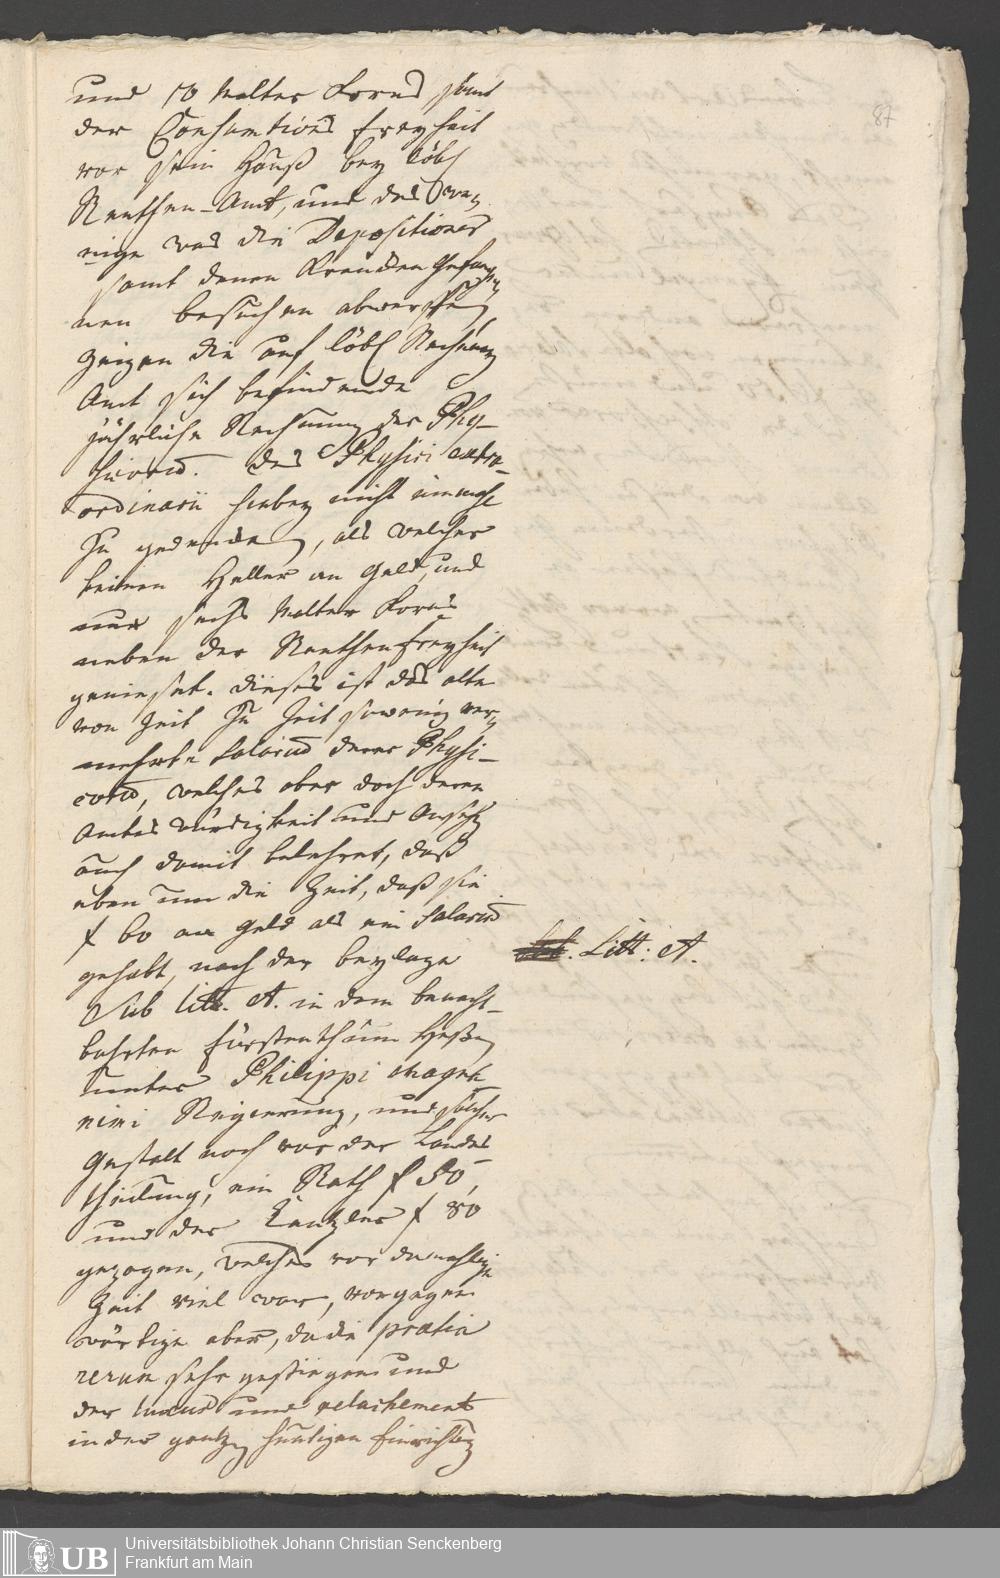 87
und 10 Malter Korns samt
der Consumtions freyheit
vor sein Hauß bey löbl
Renthen-Amt, und das we,,
nige was die Depositiones
samt denen Krancken Gefang,,
nen besuchen abwerffen,
zeigen die auf löbl Rechney
Amt sich befindende
jährliche Rechnung der Phy-
sicorum. des Physici extra-
ordinarii hiebey nicht einmahl
zu gedencken, als welcher
keinen Heller an Geld, und
nur sechs Malter Korns
neben der Renthen freyheit
geniesset. dieses ist das alte
von Zeit zu Zeit so wenig ver,,
mehrte Salarium derer Physi-
corum, welches aber doch deren
Amtes würdigkeit und Ansehen
auch damit belehret, daß
eben um die Zeit, daß sie
f 60 an Geld als ein Salarium
gehabt, nach der beylage
Sub litt. A. in dem benach-
bahrten fürstenthum Heßen
unter Philippi Magna-
nimi Regierung, und solcher
gestalt noch vor der Landes
theilung, ein Rath f 50,
und der Cantzler f 80
gezogen, welches vor damahlige
Zeit viel war, vor gegen
wärtige aber, da die pretia
rerum sehr gestiegen und
der luxus und relachement
in der gantzen heutigen Einrichtung
Litt: A.
UB
Universitätsbibliothek Johann Christian Senckenberg
Frankfurt am Main